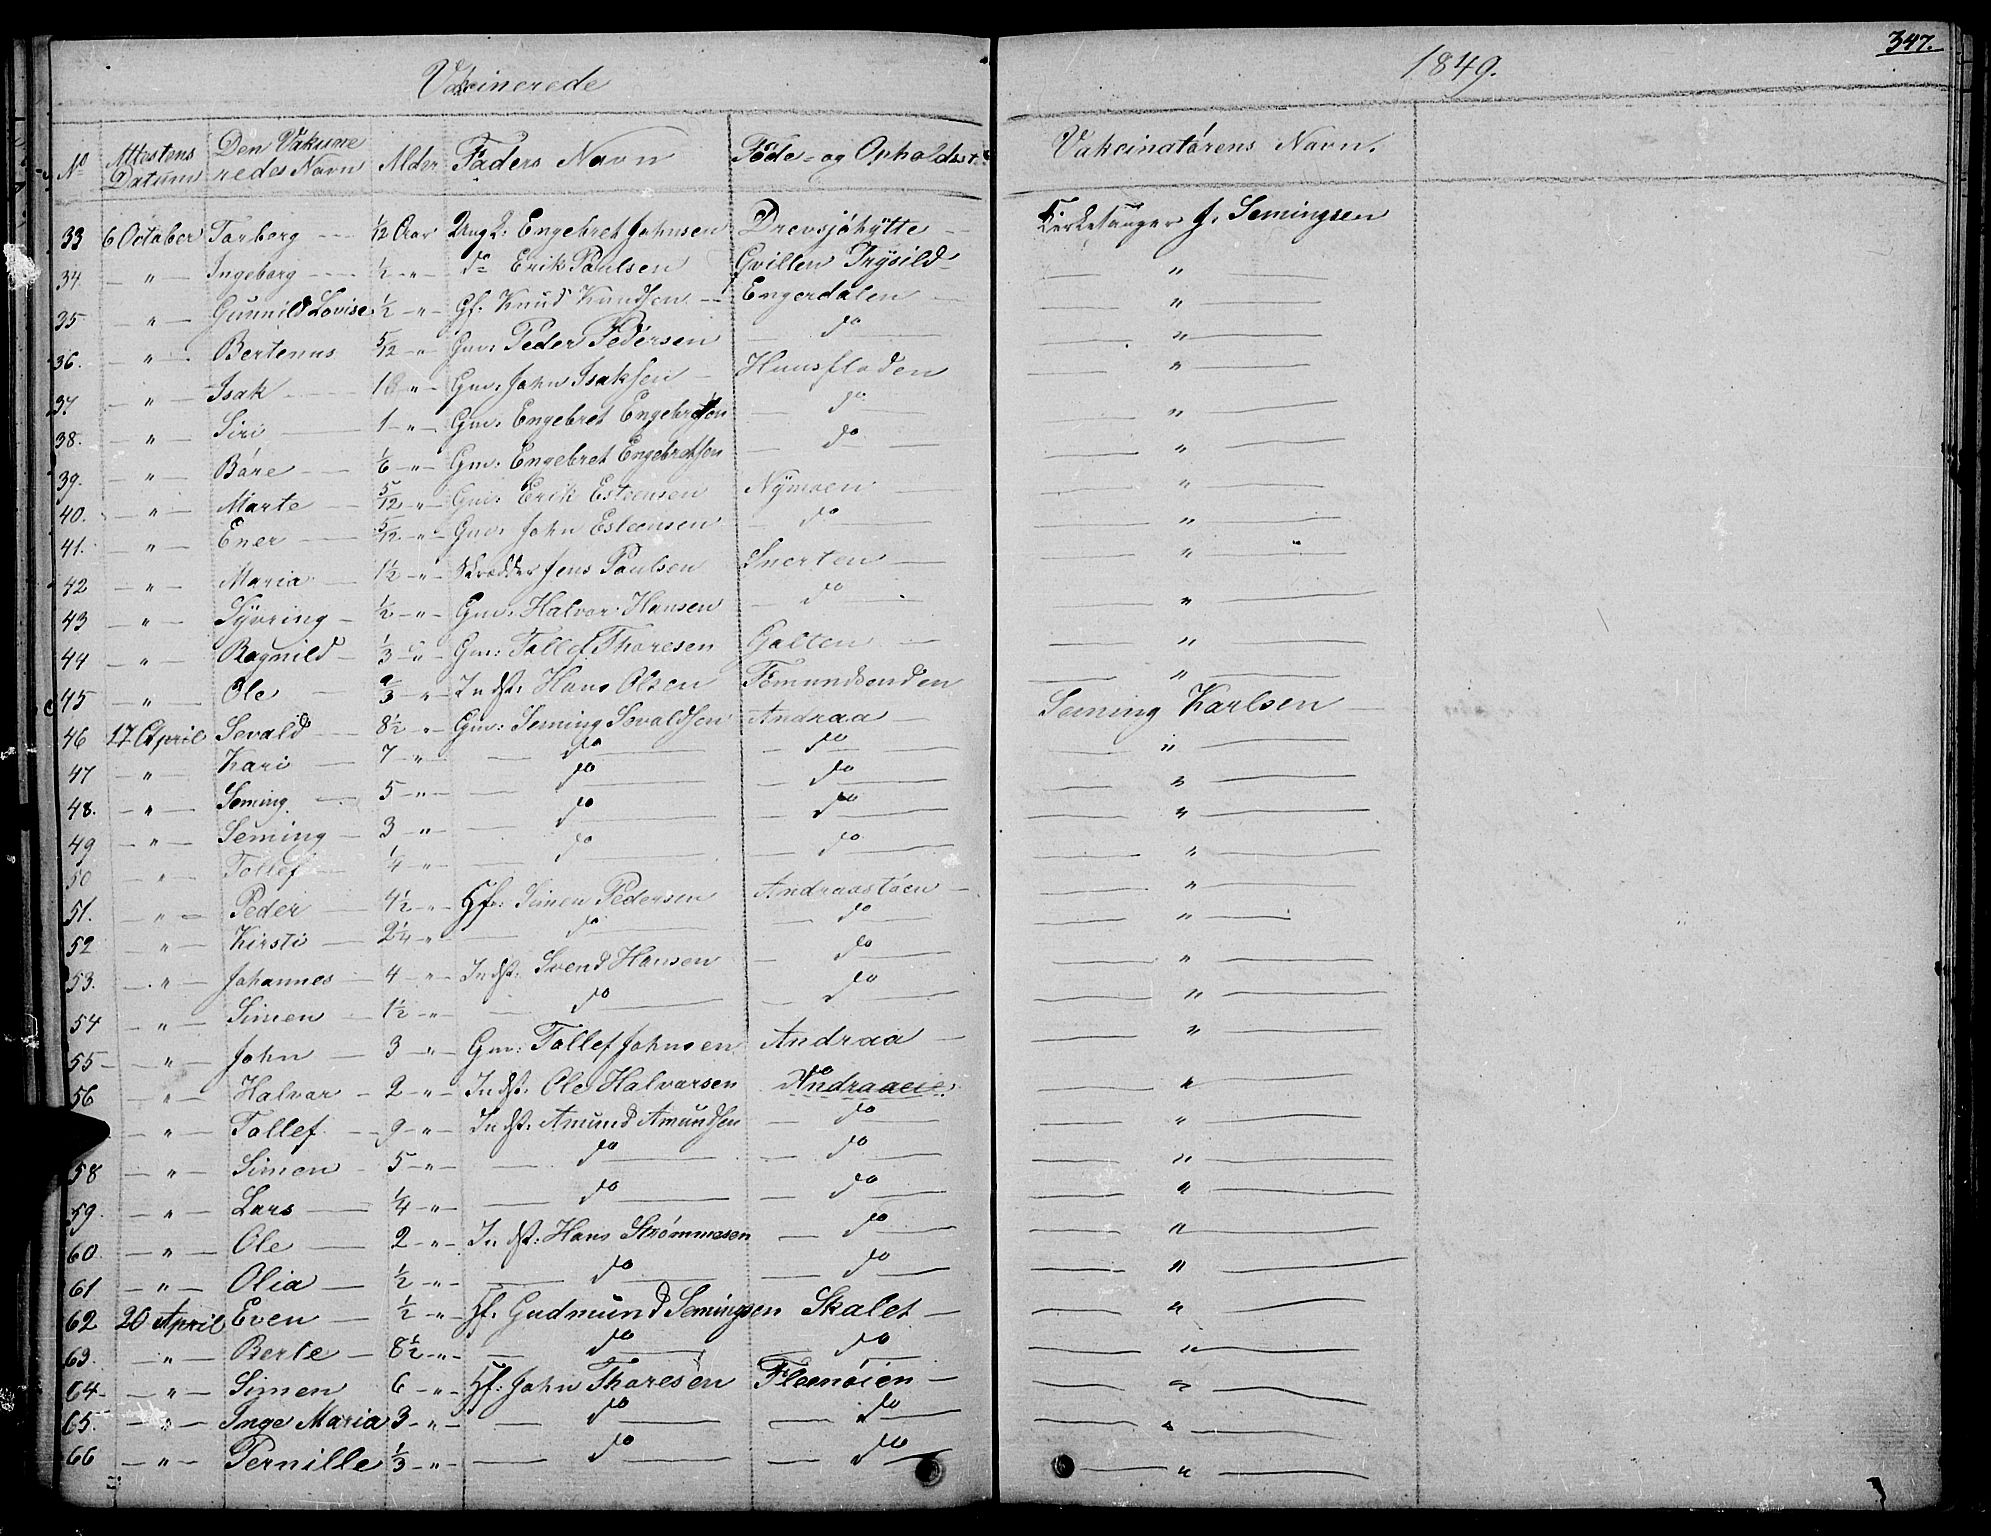 347.
Vakcinerede
1849.
No Attestens Datum Den Vakcinne redes Navn Alder Faders Navn Føde- og Opholdsst. Vakcinatørens Navn.
33 6 October Torborg ½ Aar Ungk: Engebret Johnsen Drevsjöhÿtte Kirkesanger J. Semingsen
34 — " — Ingeborg ½ — " — do Erik Paulsen Trÿsild — " —
35 — " — Gunnild Lovise ½ — " — Gf. Knud Knudsen Engerdalen — " —
36. — " — Bertenus 5/12 — " — Gm: Peder Pedersen — do — — " —
37 — " — Isak — " — Gm: John Isaksen Hunsfloden — " —
38. — " — Siri 1 — " — Gm: Engebret Engebretsen — do — — " —
39. — " — Báre 1/6 — " — Gm: Engebret Engebretsen — do — — " —
40. — " — Marte 5/12 — " — Gm: Erik Esteensen Nÿmoen — " —
41. — " — Ener 5/12 — " — Gm: John Esteensen — do — — " —
42 — " — Maria 1½ — " — Skrædder Jens Paulsen Snerten — " —
43 — " — Sÿvring ½ — " — Gm: Halvor Hansen — do — — " —
44 — " — Ragnild ⅓ — " — Gm: Tollef Thoresen Galten — " —
45 — " — Ole ⅔ — " — Indst: Hans Olsen Femundsenden — " —
46 17 April Sevald 8½ — " — Gm: Seming Sevaldsen Andraa Seming Karlsen
47 — " — Kari 7 — " — — do — — do — — " —
48. — " — Seming 5 — " — — do — — do — — " —
49 — " — Seming 3 — " — — do — — do — — " —
50 — " — Tollef ¼ — " — — do — — do — — " —
51. — " — Peder 4½ — " — Hf: Simen Pedersen Andraastöen — " —
52 — " — Kirsti 2¼ — " — — do — — do — — " —
53. — " — Johannes 4 — " — Indst: Svend Hansen — do — — " —
54 — " — Simen 1½ — " — — do — — do — — " —
55 — " — John 3 — " — Gm: Tollef Johnsen Andraa — " —
56 — " — Halvor 2 — " — Indst: Ole Halvorsen do Andraaeie — " —
— " — Tollef 9 — " — Indst: Amund Amundsen — do — — " —
58 — " — Simen 5 — " — — do — — do — — " —
59. — " — Lars ¼ — " — — do — — do — — " —
60. — " — Ole 2 — " — Indst: Hans Strømmesen — do — — " —
61 — " — Olia ½ — " — — do — — do — — " —
62 20 April Even ½ — " — Hf. Gudmund Semingsen Skalet — " —
63. — " — Berte 8½ — " — — do — — do — — " —
64 — " — Simen 6 — " — Hf: John Thoresen Floenöien — " —
65. — " — Inge Maria 3 — " — — do — — do — — " —
66 — " — Pernille ⅓ — " — — do — — do — — " —